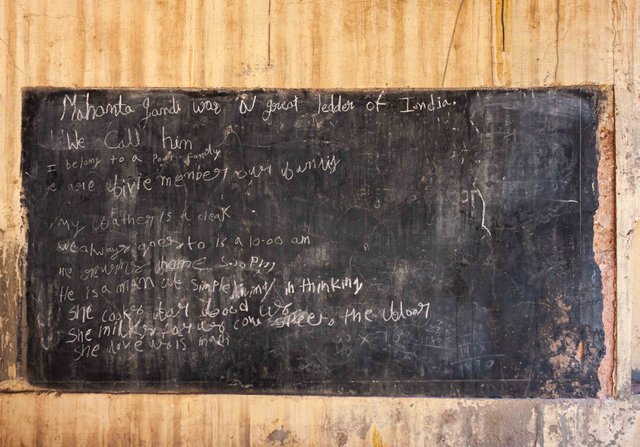 Mahanta gandi war a great ledder of India.
We Call him
I belong to a Poor family
are bivie member our bamily
My bather is a cleak
we always goes to is a 10.00 am
He home
He is a man of simple living in thinking
She cooks bor bood
She milks for us cow the bloor
She love us is mach